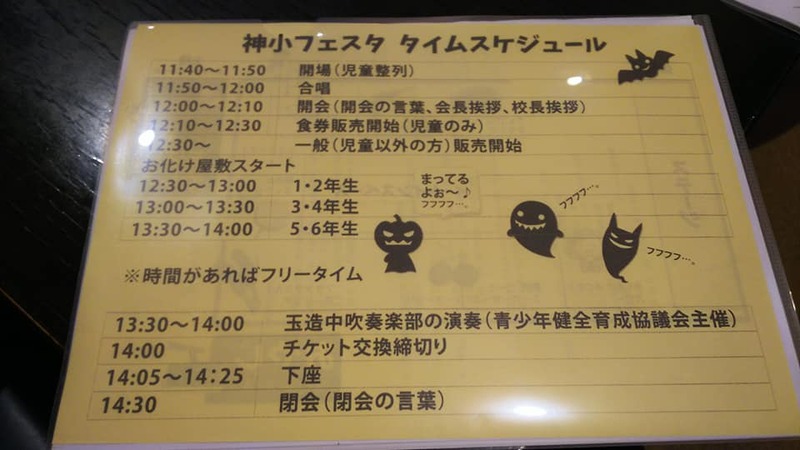 神小フェスタ タイムスケジュール
11:40〜11:50 開場(児童整列)
11:50〜12:00 合唱
12:00〜12:10 開会(開会の言葉、会長挨拶、校長挨拶)
12:10〜12:30 食券販売開始(児童のみ)
12:30〜 一般(児童以外の方)販売開始
お化け屋敷スタート
12:30〜13:00 1・2年生
13:00〜13:30 3・4年生
13:30〜14:00 5・6年生
まってる
よぉ〜♪
フフフフ…。
フフフフ…。
フフフフ…。
※時間があればフリータイム
13:30〜14:00 玉造中吹奏楽部の演奏(青少年健全育成協議会主催)
14:00 チケット交換締切り
14:05〜14:25 下座
14:30 閉会(閉会の言葉)